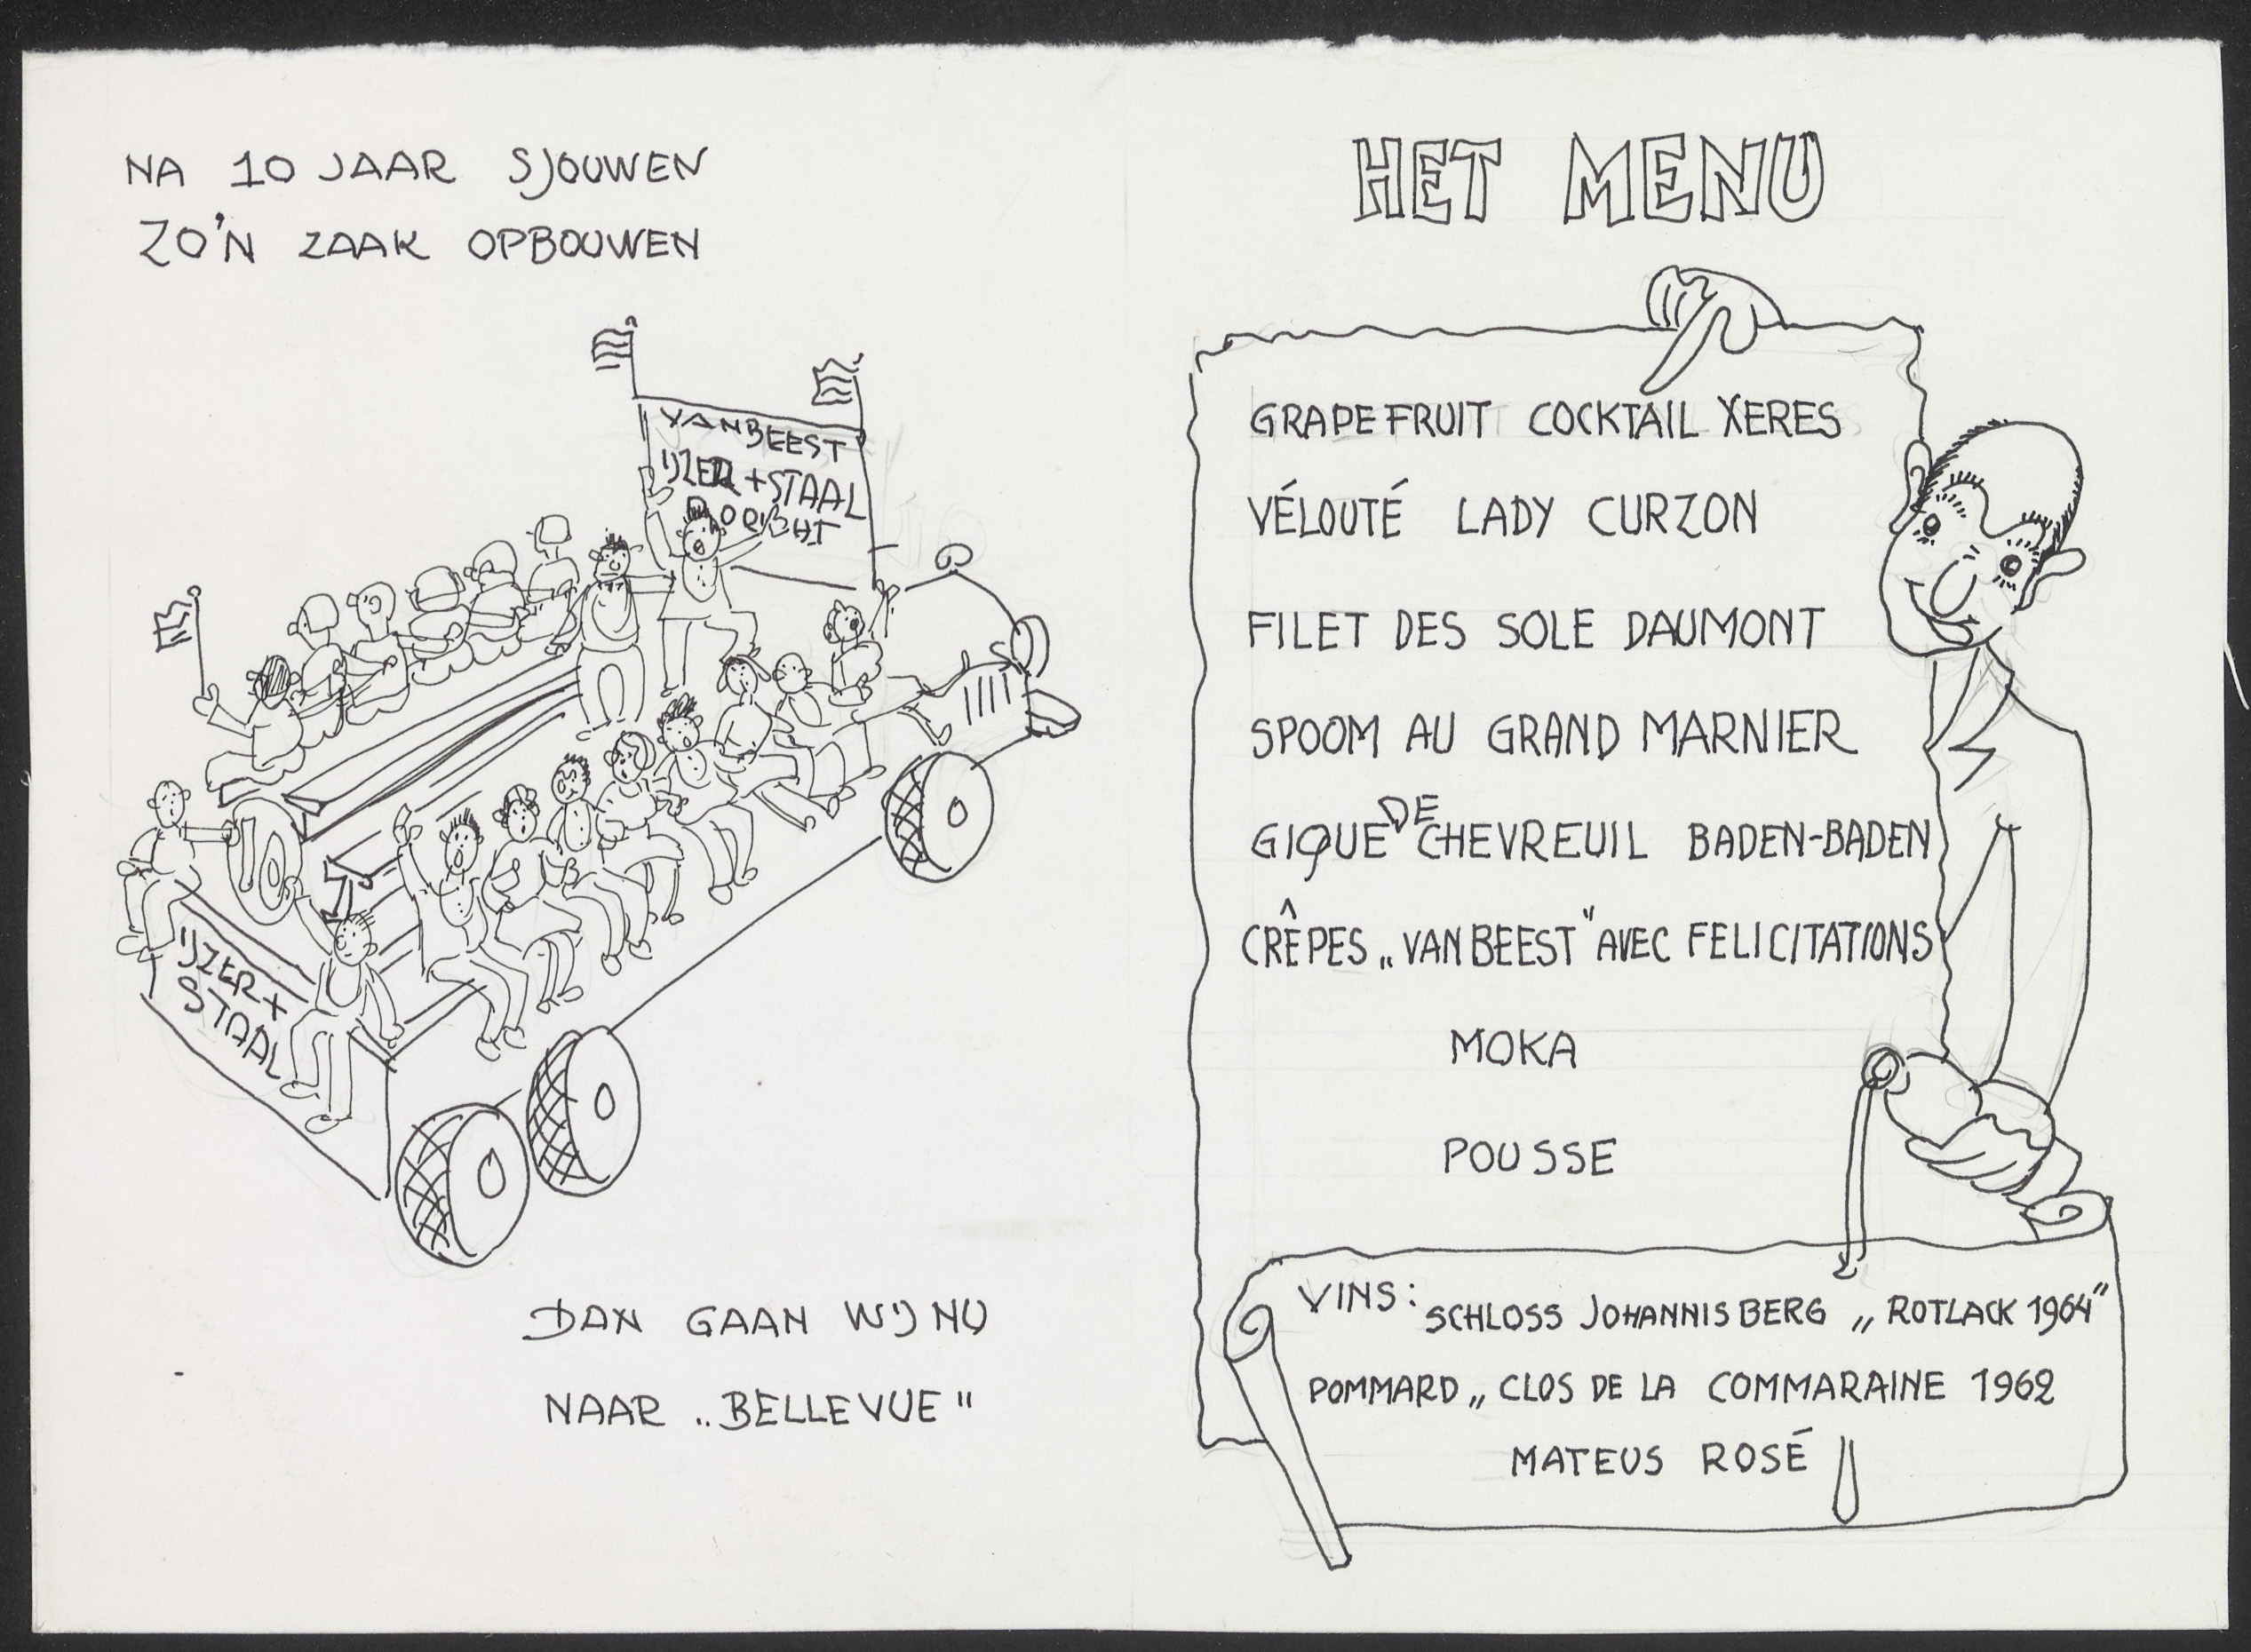 NA 10 JAAR SJOUWEN
ZO'N ZAAK OPBOUWEN
VAN BEEST
IJZER + STAAL
DORDRECHT
IJZER +
STAAL
DAN GAAN WIJ NU
NAAR „BELLEVUE"
HET MENU
GRAPEFRUIT COCKTAIL XERES
VÉLOUTÉ LADY CURZON
FILET DES SOLE DAUMONT
SPOOM AU GRAND MARNIER
GIQUE DE CHEVREUIL BADEN-BADEN
CRÊPES „VAN BEEST" AVEC FELICITATIONS
MOKA
POUSSE
VINS: SCHLOSS JOHANNISBERG „ROTLACK 1964"
POMMARD „CLOS DE LA COMMARAINE 1962
MATEUS ROSÉ